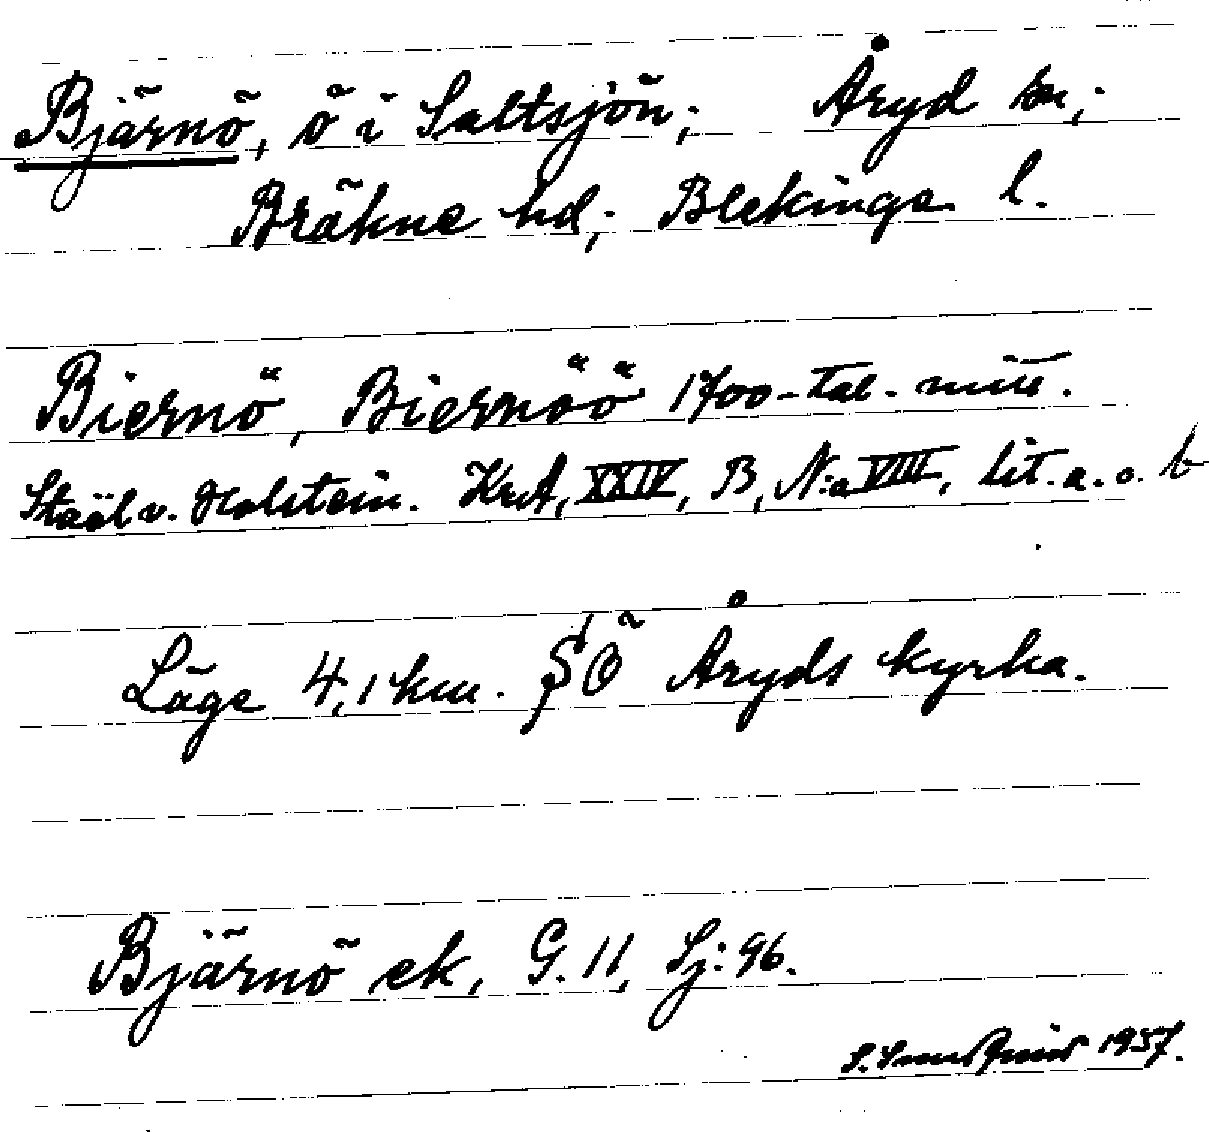 Bjärnö, ö i Saltsjön; Åryd sn;
Bräkne hd; Blekinge l.
Biernö, Biernöö 1700-tal-mitt.
Staël v. Holstein. KrA, XXIV, B, N:o VIII, lit. a. o. b
Läge 4,1 km. SÖ Åryds kyrka.
Bjärnö ek, G. 11, Sj: 96.
1957.